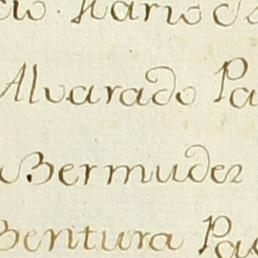 Alvarado Pa
Bermudez
Bentura Pau